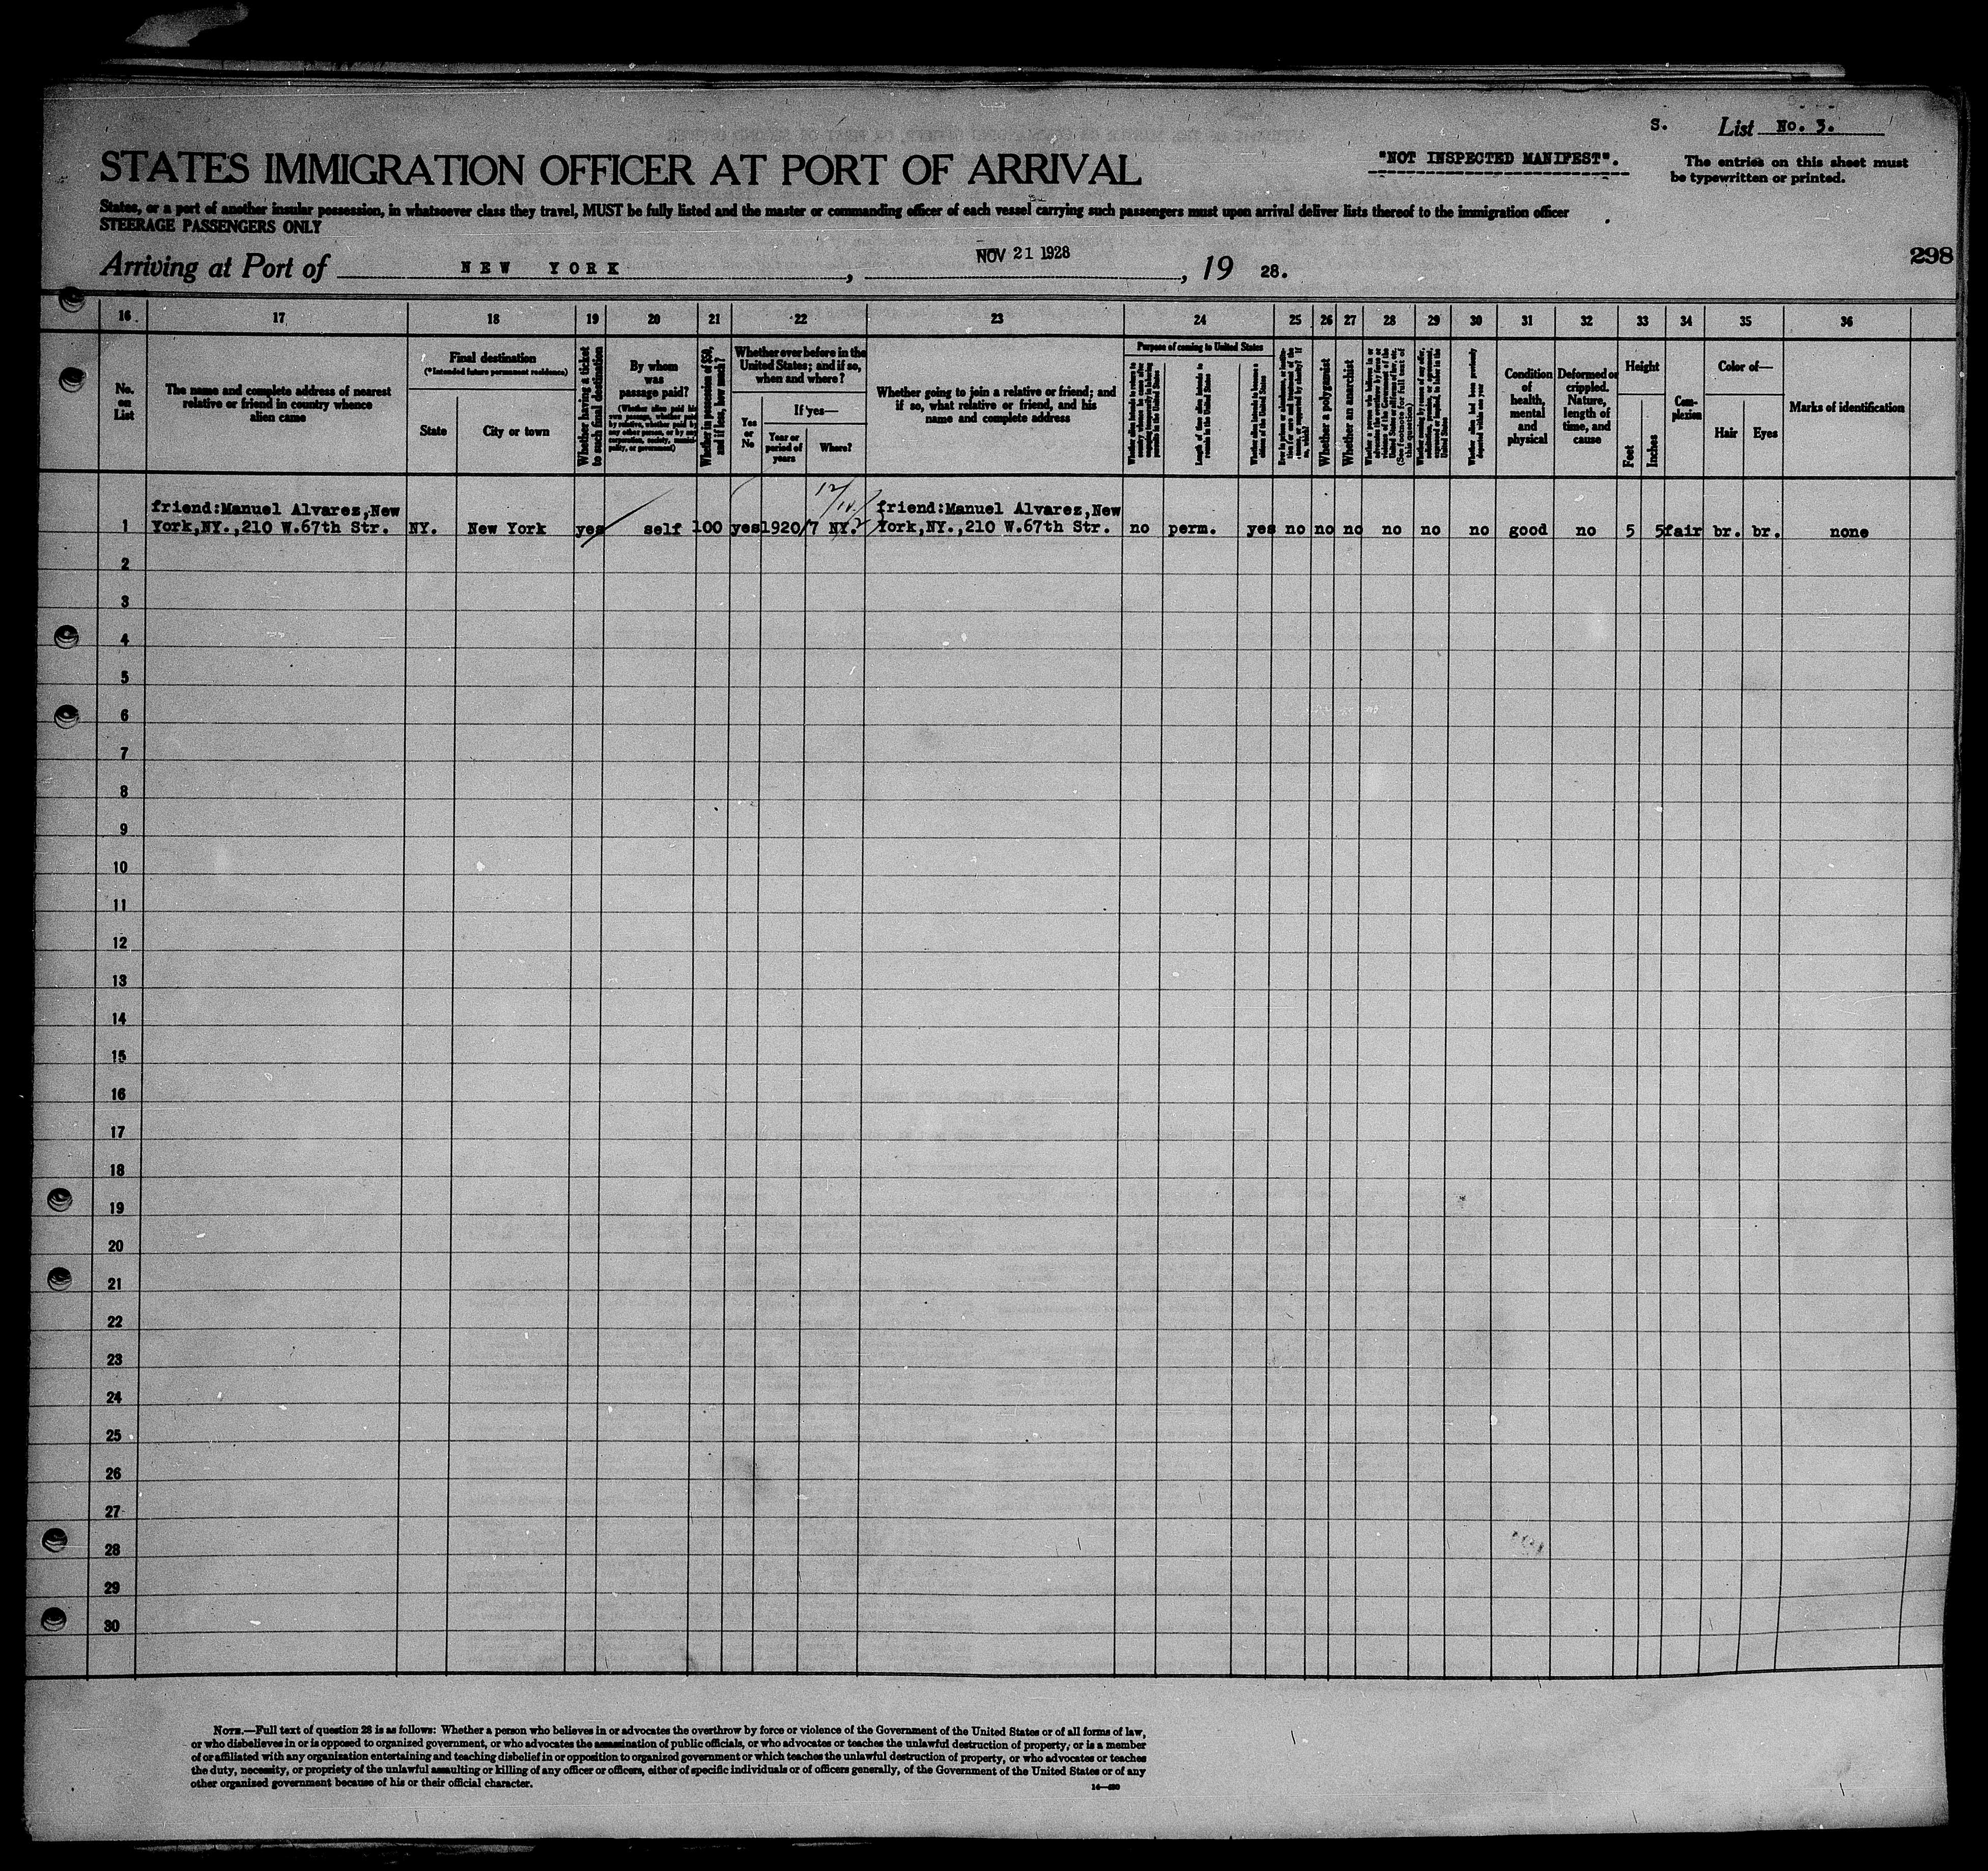 S. List No. 3.
STATES IMMIGRATION OFFICER AT PORT OF ARRIVAL
"NOT INSPECTED MANIFEST".
The entries on this sheet must
be typewritten or printed.
States, or a port of another insular possession, in whatsoever class they travel, MUST be fully listed and the master or commanding officer of each vessel carrying such passengers must upon arrival deliver lists thereof to the immigration officer
STEERAGE PASSENGERS ONLY
Arriving at Port of NEW YORK, NOV 21 1928, 19 28.
298
16 17 18 19 20 21 22 23 24 25 26 27 28 29 30 31 32 33 34 35 36
No.
on
List
The name and complete address of nearest
relative or friend in country whence
alien came
Final destination
(*Intended future permanent residence)
State
City or town
Whether having a ticket
to such final destination
By whom
was
passage paid?
(Whether alien paid his
own passage, whether paid
by relative, whether paid by
any other person, or by any
corporation, society, munici-
pality, or government)
Whether in possession of $50,
and if less, how much?
Whether ever before in the
United States; and if so,
when and where?
Yes
or
No
If yes—
Year or
period of
years
Where?
Whether going to join a relative or friend; and
if so, what relative or friend, and his
name and complete address
Purpose of coming to United States
Whether alien intends to return to
country whence he came after
engaging temporarily in laboring
pursuits in the United States
Length of time alien intends to
remain in the United States
Whether alien intends to become a
citizen of the United States
Whether a polygamist
Whether an anarchist
(See footnote for full text of
this question)
Whether alien had been previously
deported within one year
Condition
of
health,
mental
and
physical
Deformed or
crippled.
Nature,
length of
time, and
cause
Height
Feet
Inches
Com-
plexion
Color of—
Hair
Eyes
Marks of identification
friend:Manuel Alvarez,New
1 York,NY.,210 W.67th Str. NY. New York yes self 100 yes 1920/7 NY.
friend:Manuel Alvarez,New
York,NY.,210 W.67th Str. no perm. yes no no no no no no good no 5 5 fair br. br. none
2
3
4
5
6
7
8
9
10
11
12
13
14
15
16
17
18
19
20
21
22
23
24
25
26
27
28
29
30
NOTE.—Full text of question 28 is as follows: Whether a person who believes in or advocates the overthrow by force or violence of the Government of the United States or of all forms of law,
or who disbelieves in or is opposed to organized government, or who advocates the assassination of public officials, or who advocates or teaches the unlawful destruction of property, or is a member
of or affiliated with any organization entertaining and teaching disbelief in or opposition to organized government or which teaches the unlawful destruction of property, or who advocates or teaches
the duty, necessity, or propriety of the unlawful assaulting or killing of any officer or officers, either of specific individuals or of officers generally, of the Government of the United States or of any
other organized government because of his or their official character.